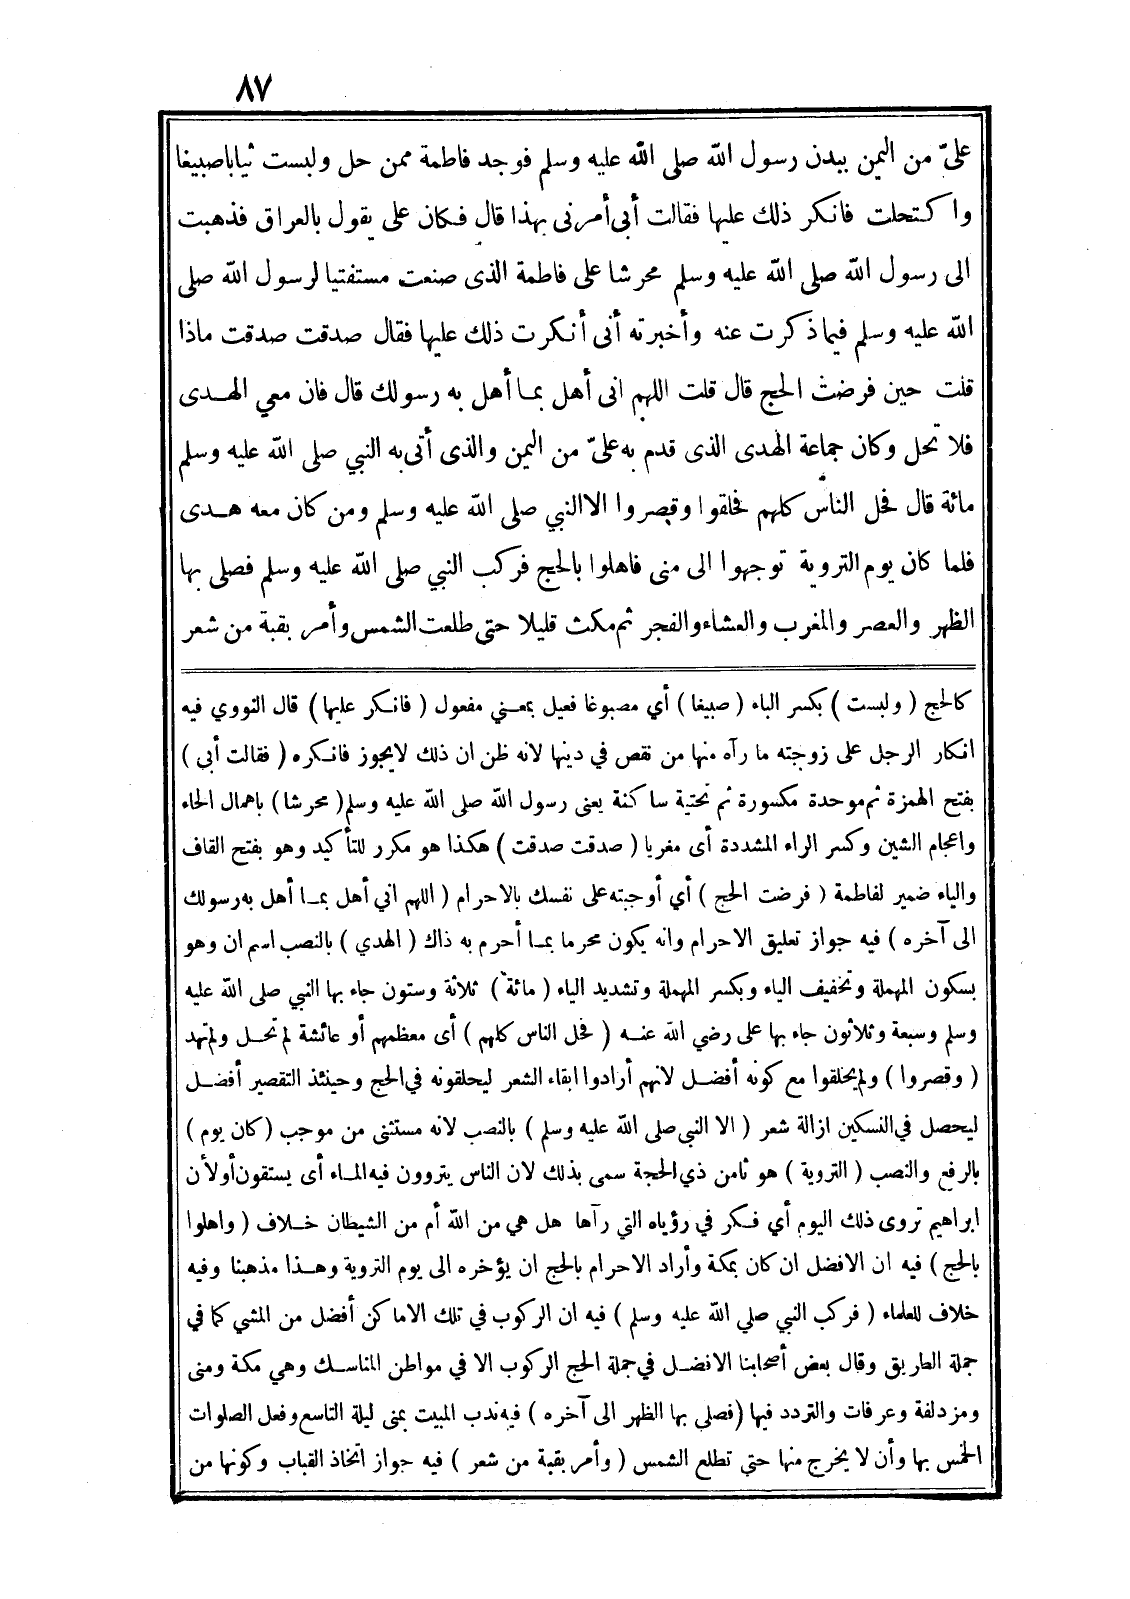 ٨٧
علىّ من اليمن ببدن رسول الله صلى الله عليه وسلم فوجد فاطمة ممن حل ولبست ثيابا صبيغا
واكتحلت فانكر ذلك عليها فقالت أبى أمرنى بهذا قال فكان على يقول بالعراق فذهبت
الى رسول الله صلى الله عليه وسلم محرشا على فاطمة الذى صنعت مستفتيا لرسول الله صلى
الله عليه وسلم فيما ذكرت عنه وأخبرته أنى أنكرت ذلك عليها فقال صدقت صدقت ماذا
قلت حين فرضت الحج قال قلت اللهم انى أهل بما أهل به رسولك قال فان معي الهدى
فلا تحل وكان جماعة الهدى الذى قدم به علىّ من اليمن والذى أتى به النبي صلى الله عليه وسلم
مائة قال فحل الناس كلهم فحلقوا وقصروا الا النبي صلى الله عليه وسلم ومن كان معه هدى
فلما كان يوم التروية توجهوا الى منى فاهلوا بالحج فركب النبي صلى الله عليه وسلم فصلى بها
الظهر والعصر والمغرب والعشاء والفجر ثم مكث قليلا حتى طلعت الشمس وأمر بقبة من شعر
كالحج ( ولبست ) بكسر الباء ( صبيغا ) أي مصبوغا فعيل بمعني مفعول ( فانكر عليها ) قال النووي فيه
انكار الرجل على زوجته ما رآه منها من نقص في دينها لانه ظن ان ذلك لا يجوز فانكره ( فقالت أبى )
بفتح الهمزة ثم موحدة مكسورة ثم تحتية ساكنة يعنى رسول الله صلى الله عليه وسلم ( محرشا ) باهمال الحاء
واعجام الشين وكسر الراء المشددة أى مغريا ( صدقت صدقت ) هكذا هو مكرر للتأكيد وهو بفتح القاف
والياء ضمير لفاطمة ( فرضت الحج ) أي أوجبته على نفسك بالاحرام ( اللهم اني أهل بما أهل به رسولك
الى آخره ) فيه جواز تعليق الاحرام وانه يكون محرما بما أحرم به ذاك ( الهدي ) بالنصب اسم ان وهو
بسكون المهملة وتخفيف الياء وبكسر المهملة وتشديد الياء ( مائة ) ثلاثة وستون جاء بها النبي صلى الله عليه
وسلم وسبعة وثلاثون جاء بها على رضي الله عنه ( فحل الناس كلهم ) أى معظمهم أو عائشة لم تحل ولم تهد
( وقصروا ) ولم يحلقوا مع كونه أفضل لانهم أرادوا ابقاء الشعر ليحلقونه في الحج وحينئذ التقصير أفضل
ليحصل في النسكين ازالة شعر ( الا النبي صلى الله عليه وسلم ) بالنصب لانه مستثنى من موجب ( كان يوم )
بالرفع والنصب ( التروية ) هو ثامن ذي الحجة سمى بذلك لان الناس يتروون فيه الماء أى يستقون أو لأن
ابراهيم تروى ذلك اليوم أي فكر في رؤياه التي رآها هل هي من الله أم من الشيطان خلاف ( واهلوا
بالحج ) فيه ان الافضل ان كان بمكة وأراد الاحرام بالحج ان يؤخره الى يوم التروية وهذا مذهبنا وفيه
خلاف للعلماء ( فركب النبي صلي الله عليه وسلم ) فيه ان الركوب في تلك الاماكن أفضل من المشي كما في
جملة الطريق وقال بعض أصحابنا الافضل في جملة الحج الركوب الا في مواطن المناسك وهي مكة ومنى
ومزدلفة وعرفات والتردد فيها ( فصلى بها الظهر الى آخره ) فيه ندب المبيت بمنى ليلة التاسع وفعل الصلوات
الخمس بها وأن لا يخرج منها حتى تطلع الشمس ( وأمر بقبة من شعر ) فيه جواز اتخاذ القباب وكونها من